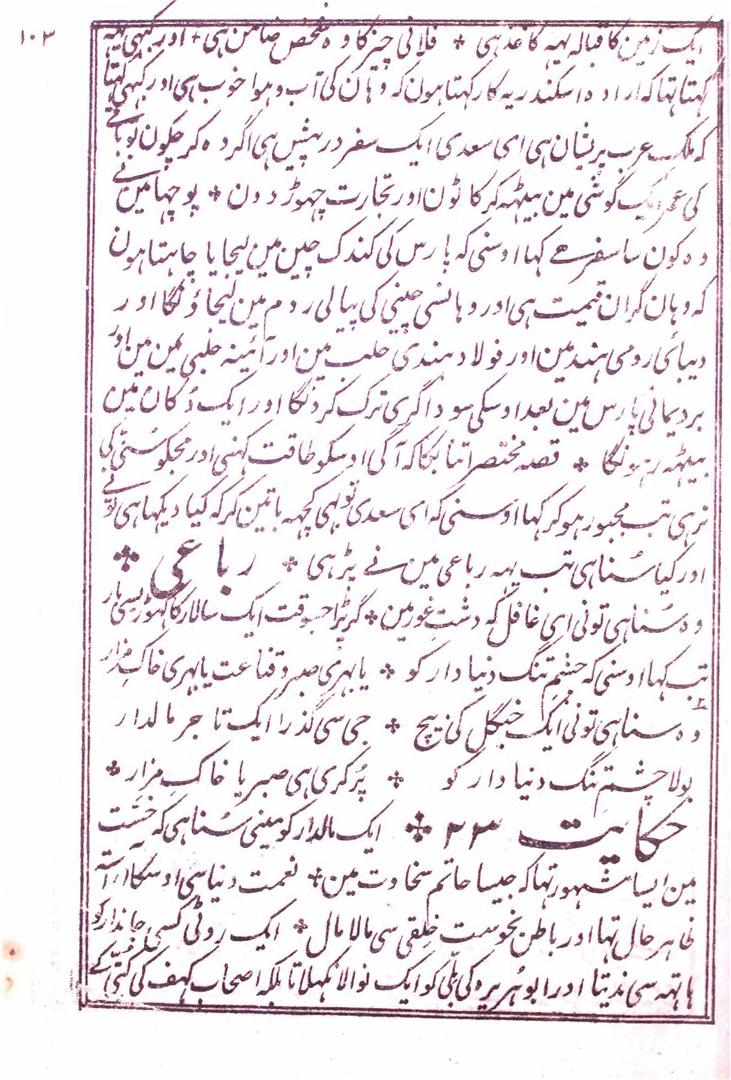 ۱۰۳
ایک زمین کا قبالہ یہہ کاغذ ہی * فلانی چیز کا وہ شخص ضامن ہی * اور کبہی یہہ
کہتا تہا کہ ارادہ اسکندریہ کا رکہتا ہون کہ وہان کی آب و ہوا خوب ہی اور کبہی کہتا
کہ ملک عرب پریشان ہی ای سعدی ایک سفر درپیش ہی اگر وہ کر چکون تو باقی
کی عمر ایک گوشی مین بیٹہہ کر کاٹون اور تجارت چہوڑ دون * پوچہا مین نے
وہ کون سا سفر ہے کہا اوسنی کہ پارس کی گندک چین مین لیجایا چاہتا ہون
کہ وہان گران قیمت ہی اور وہانسی چینی کی پیالی روم مین لیجاؤنگا اور
دیبای رومی ہند مین اور فولاد ہندی حلب مین اور آئینہ حلبی یمن مین اور
برد یمانی پارس مین بعد اوسکی سوداگری ترک کرونگا اور ایک دُکان مین
بیٹہہ رہونگا * قصہ مختصر اتنا بکا کہ آگی اوسکو طاقت کہنی اور مجکو سُننی کی
نرہی تب مجبور ہو کر کہا اوسنی کہ ای سعدی تو بہی کچہہ باتین کر کہ کیا دیکہا ہی تونے
اور کیا سُنا ہی تب یہہ رباعی مین نے پڑہی * رباعی *
وہ سُنا ہی تونی ای غافل کہ دشتِ غور مین * گر پڑا جسوقت ایک سالار کا گہوڑیسی بار
تب کہا اوسنی کہ چشمِ تنگ دنیا دار کو * یا بہری صبر و قناعت یا بہری خاک مزار
وہ سنا ہی تونی ایک جنگل کی بیچ * جی سی گذرا ایک تاجر مالدار
بولا چشمِ تنگ دنیا دار کو * پُر کری ہی صبر یا خاک مزار *
حکایت ۲۳ * ایک مالدار کو مینی سُنا ہی کہ خسّت
مین ایسا مشہور تہا کہ جیسا حاتم سخاوت مین * نعمت دنیا سی اوسکا آراستہ
ظاہر حال تہا اور باطن نحوست خلقی سی مالا مال * ایک روٹی کسی جاندار کو
ہاتہہ سی ندیتا اور ابوہُریرہ کی بلّی کو ایک نوالا نکہلاتا بلکہ اصحاب کہف کی کتّی کے